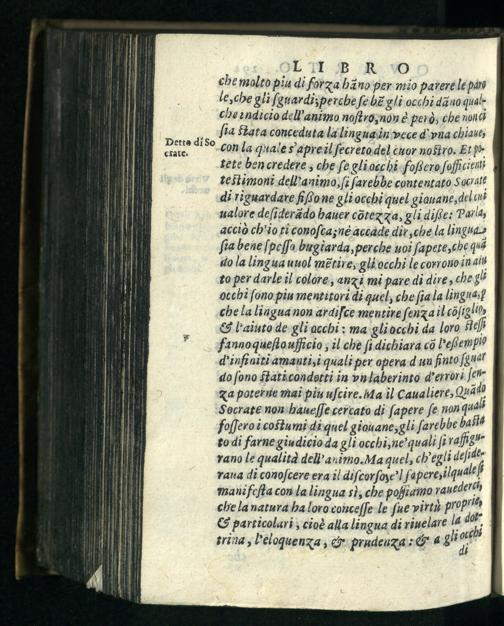 LIBRO
che molto piu di forza hãno per mio parere le paro
le, che gli sguardi; perche se bẽ gli occhi dãno qual-
che indicio dell'animo nostro, non è però, che non ci
sia stata conceduta la lingua in vece d'vna chiaue,
Detto di So
crate.
con la quale s'apre il secreto del cuor nostro. Et po-
tete ben credere, che se gli occhi fossero sofficienti
testimoni dell'animo, si sarebbe contentato Socrate
di riguardare fiso ne gli occhi quel giouane, del cui
ualore desiderãdo hauer cõtezza, gli disse: Parla,
acciò ch'io ti conosca; nè accade dir, che la lingua
sia bene spesso bugiarda, perche uoi sapete, che quã
do la lingua uuol mẽtire, gli occhi le corrono in aiu
to per darle il colore, anzi mi pare di dire, che gli
occhi sono piu mentitori di quel, che sia la lingua, p
che la lingua non ardisce mentire senza il cõsiglio,
& l'aiuto de gli occhi: ma gli occhi da loro stessi
fanno questo ufficio, il che si dichiara cõ l'essempio
d'infiniti amanti, i quali per opera d'un finto sguar
do sono stati condotti in vn laberinto d'errori sen-
za poterne mai piu uscire. Ma il Caualiere, Quãdo
Socrate non hauesse cercato di sapere se non quali
fossero i costumi di quel giouane, gli sarebbe basta
to di farne giudicio da gli occhi, ne' quali si raffigu-
rano le qualità dell'animo. Ma quel, ch'egli deside-
raua di conoscere era il discorso, e'l sapere, il quale si
manifesta con la lingua sì, che possiamo rauederci,
che la natura ha loro concesse le sue virtù proprie,
& particolari, cioè alla lingua di riuelare la dot-
trina, l'eloquenza, & prudenza: & a gli occhi
di